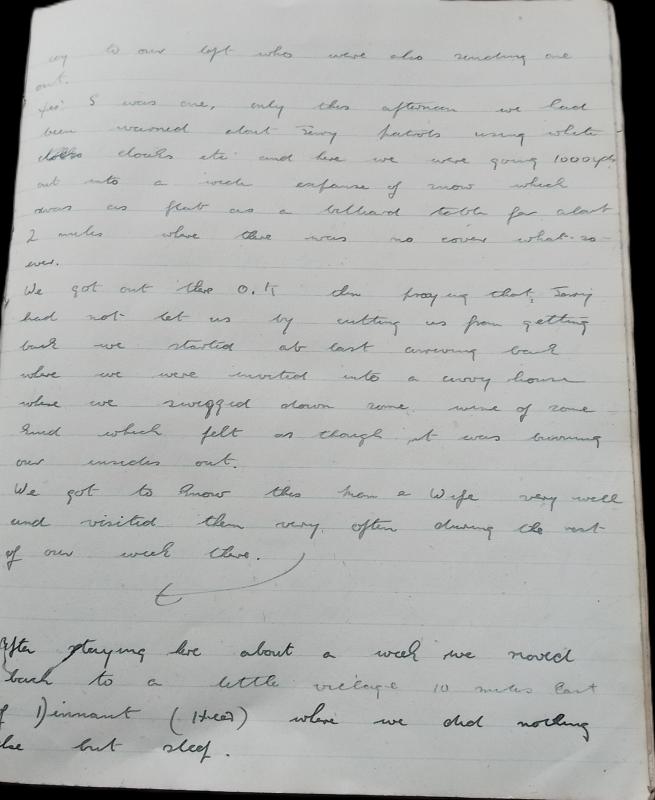 coy to our left who were also sending one
out.
Yes' S was one, only this afternoon we had
been warned about Jerry patrols using white
cloaks etc and here we were going 1000yds
out into a wide expanse of snow which
was as flat as a billiard table for about
2 miles where there was no cover what-so-
ever.
We got out there O.K then praying that Jerry
had not let us by cutting us from getting
back we started at last arriving back
where we were invited into a civvy house
where we swigged down some wine of some
kind which felt as though it was burning
our insides out.
We got to know this man & Wife very well
and visited them very often during the rest
of our week there.
After staying here about a week we moved
back to a little village 10 miles East
of Dinnant ( ) where we did nothing
else but sleep.